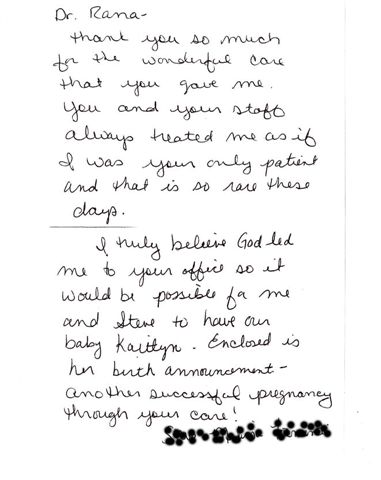 Dr. Rana-
thank you so much
for the wonderful care
that you gave me.
You and your staff
always treated me as if
I was your only patient
and that is so rare these
days.
I truly believe God led
me to your office so it
would be possible for me
and Steve to have our
baby Kaitlyn. Enclosed is
her birth announcement-
another successful pregnancy
through your care!